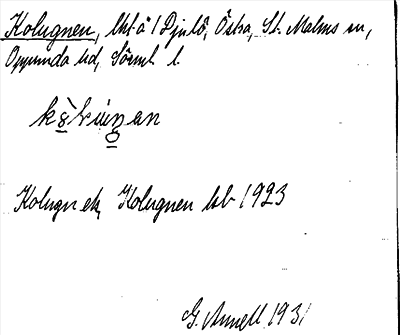 Kolugnen, lht å / Djulö, Östra, St. Malms sn,
Oppunda hd, Sörml. l.
Kolugn ek, Kolugnen lsb 1923
G. Annell 1931